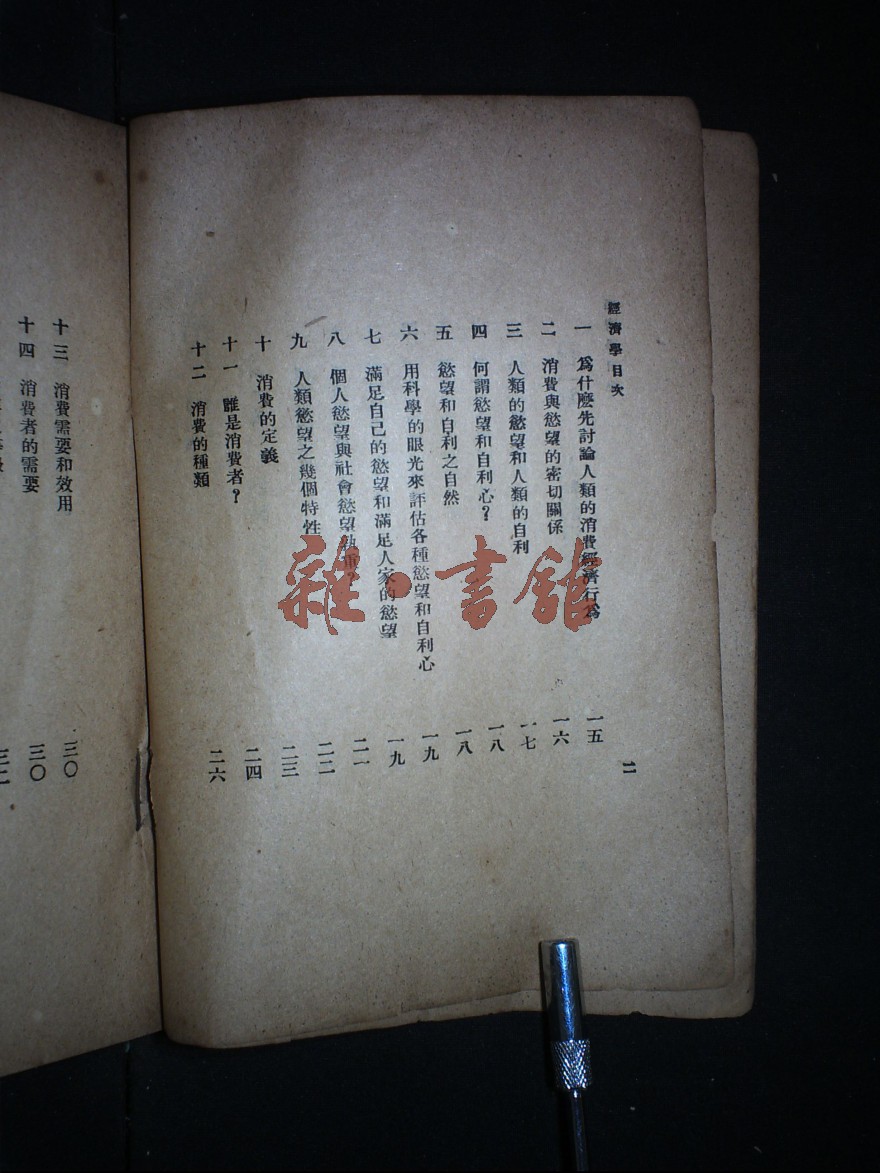 經濟學目次
一 爲什麽先討論人類的消費經濟行爲 一五
二 消費與慾望的密切關係 一六
三 人類的慾望和人類的自利 一七
四 何謂慾望和自利心？ 一八
五 慾望和自利之自然 一八
六 用科學的眼光來評估各種慾望和自利心 一九
七 滿足自己的慾望和滿足人家的慾望 一九
八 個人慾望與社會慾望孰重？ 二一
九 人類慾望之幾個特性 二三
十 消費的定義 二四
十一 誰是消費者？
十二 消費的種類 二六
二
十三 消費需要和效用 三〇
十四 消費者的需要 三〇
雜·書館